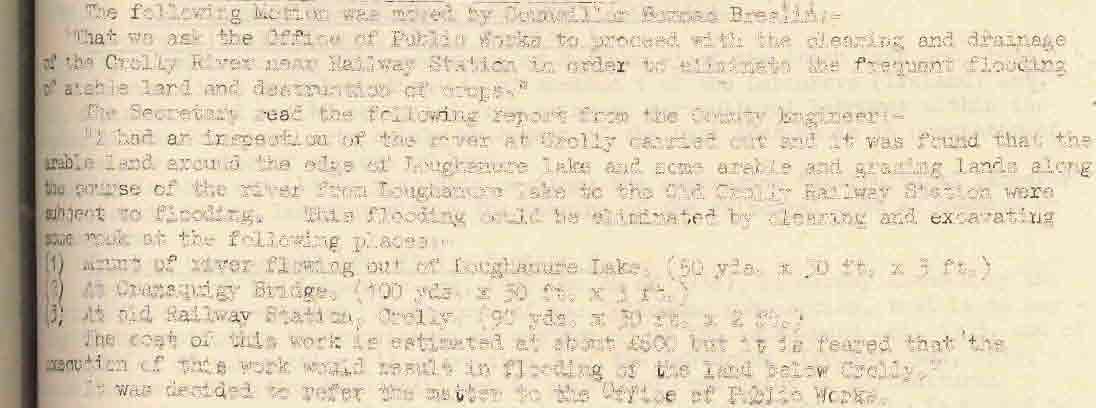 The following Motion was moved by Councillor Norman Breslin:-
"That we ask the Office of Public Works to proceed with the clearing and drainage
of the Crolly River near Railway Station in order to eliminate the frequent flooding
of arable land and destruction of crops."
The Secretary read the following report from the County Engineer:-
"I had an inspection of the river at Crolly carried out and it was found that the
arable land around the edge of Loughanure lake and some arable and grazing lands along
the course of the river from Loughanure lake to the Old Crolly Railway Station were
subject to flooding. This flooding could be eliminated by clearing and excavating
some rock at the following places:-
(1) of river flowing out of Loughanure Lake. (50 yds. x 30 ft. x 3 ft.)
(2) At Bridge. (100 yds. x 30 ft. x 3 ft.)
(3) At old Railway Station, Crolly. (90 yds. x 30 ft. x 2 ft.)
The cost of this work is estimated at about £600 but it is feared that the
execution of this work would result in flooding of the land below Crolly."
It was decided to refer the matter to the Office of Public Works.